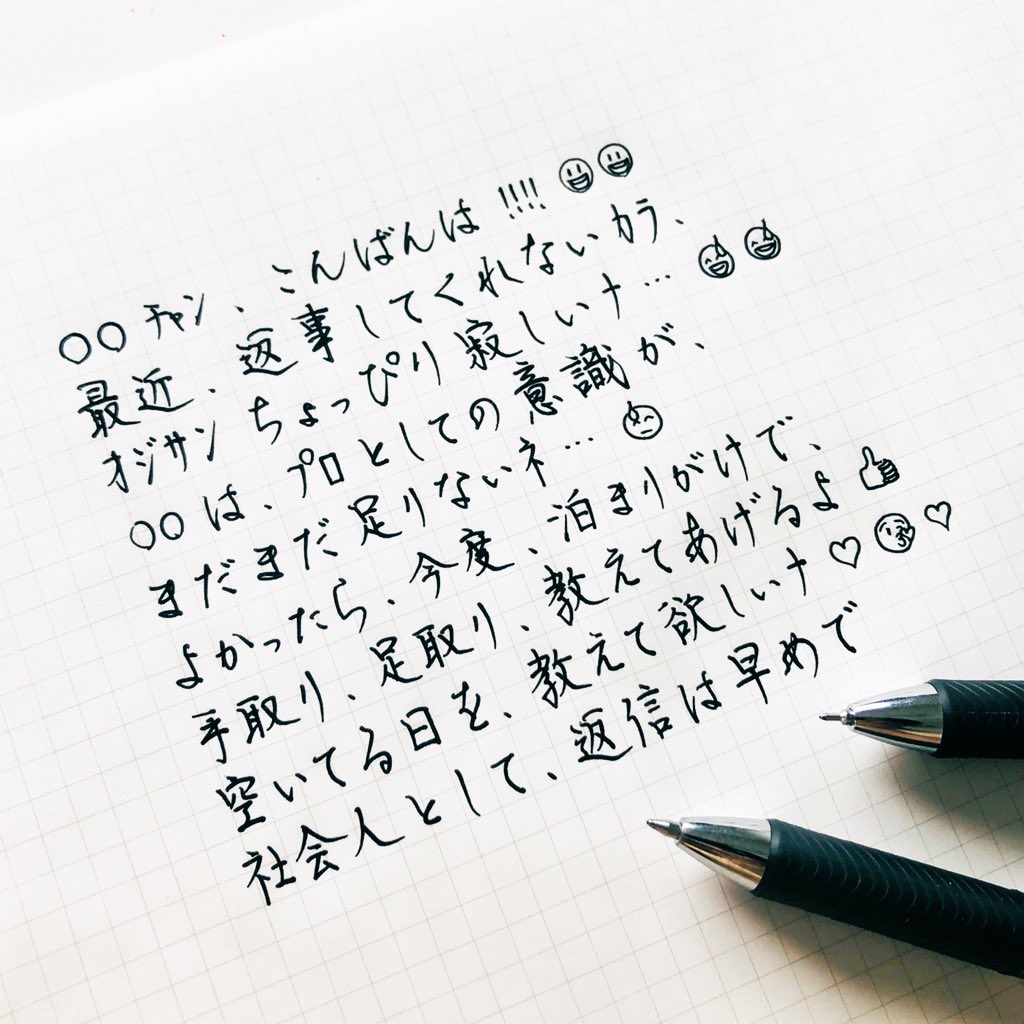 ○○ﾁｬﾝ、こんばんは!!!!😃😃
最近、返事してくれないカラ、
オジサンちょっぴり寂しいナ…😅😅
○○は、プロとしての意識が、
まだまだ足りないネ…😔
よかったら、今度、泊まりがけで、
手取り、足取り、教えてあげるよ👍
空いてる日を、教えて欲しいナ♡😘♡
社会人として、返信は早めで